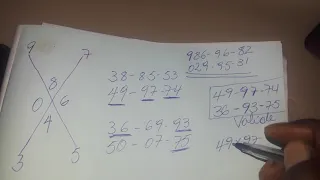 9 7
8
0 6
4
3 5
38-85-53
49-97-74
36-69-93
50-07-75
986-96-82
029-95-31
49-97-74
36-93-75
Valide
49